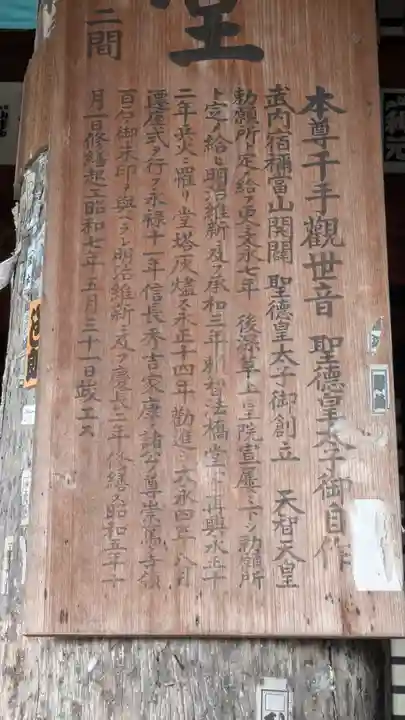 堂
二間
本尊千手觀世音 聖德皇太子御自作
武内宿禰當山開闢 聖德皇太子御創立 天智天皇
勅願所ト定メ給フ更ニ文永七年 後深草上皇院宣屢々下シ勅願所
ト定メ給ヒ明治維新ニ及フ承和三年 法橋堂 再興永正十
二年兵火ニ罹リ堂塔灰燼ス永正十四年勸進シ大永四年八月
遷座式ヲ行フ永禄十一年信長秀吉家康ノ諸公尊崇篤ク寺領
百石御朱印ヲ與ヘラレ明治維新ニ及フ慶長三年 修繕又昭和五年十
月一日修繕起工昭和七年五月三十一日竣工ス